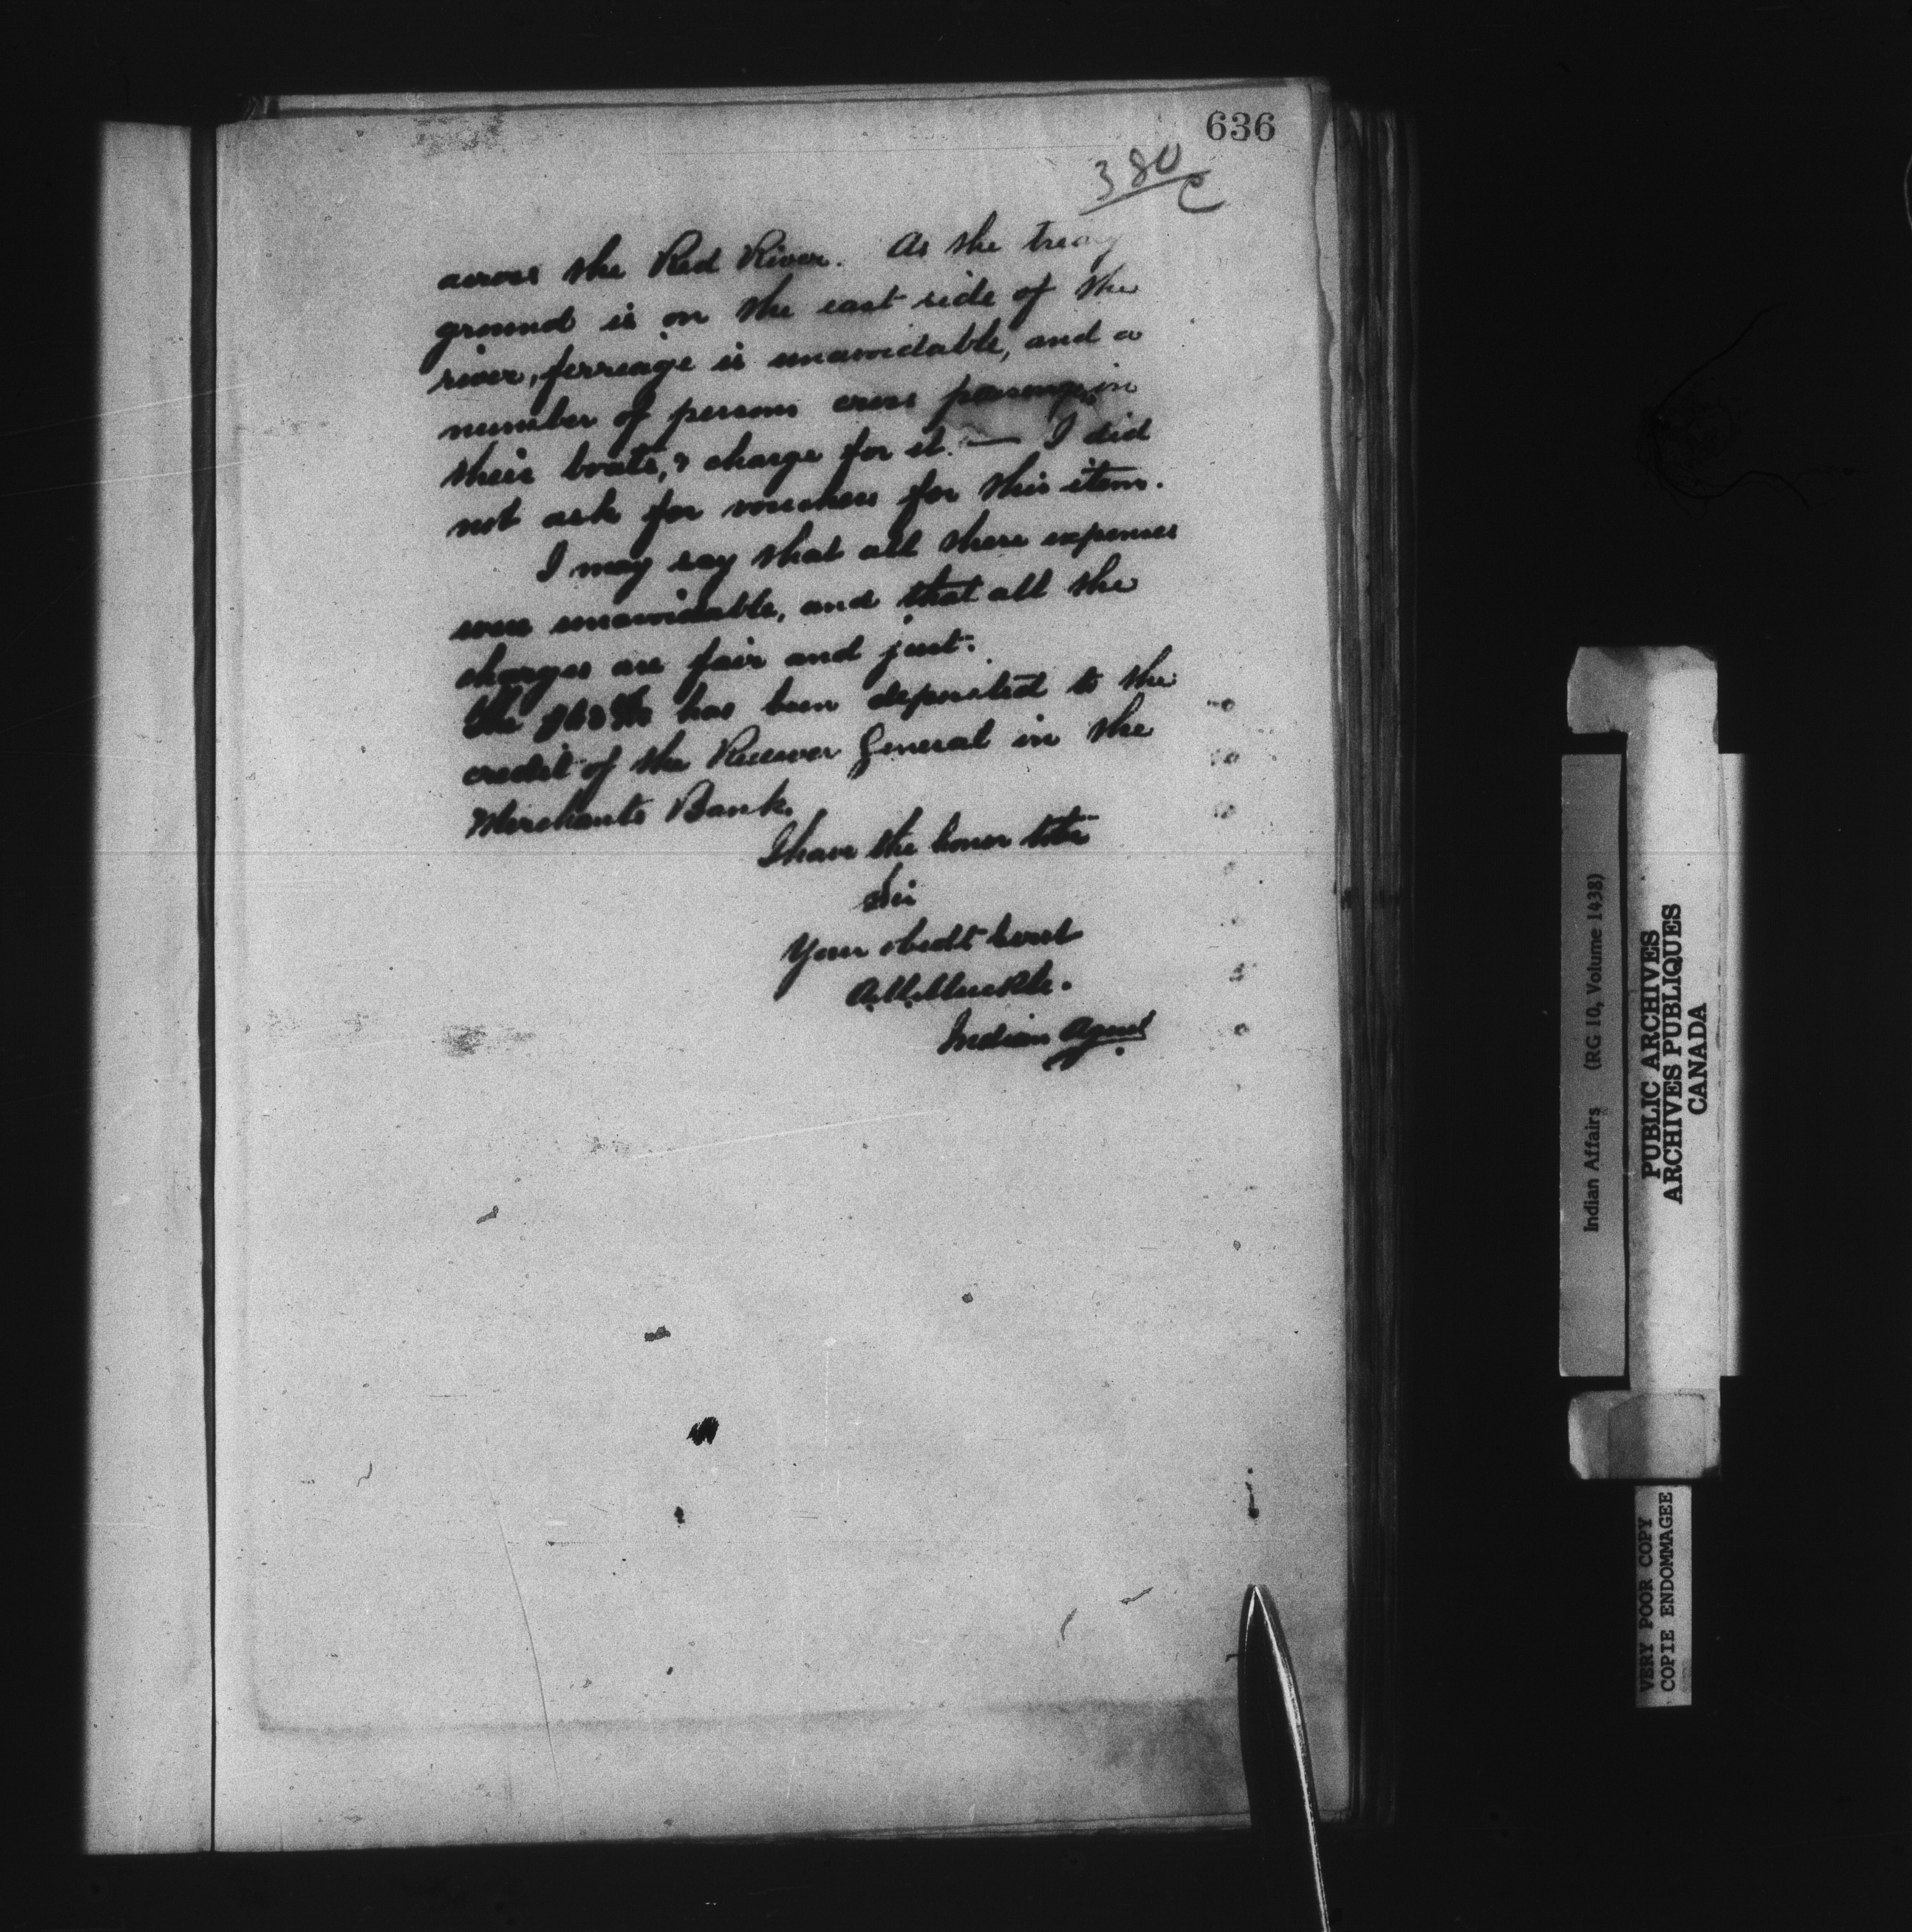 636
380
c
across the Red River. As the treaty
ground is on the east side of the
river, ferreage is unavoidable, and a
number of persons cross in
their boats, & charge for it. — I did
not ask for vouchers for this item.
I may say that all these expenses
were unavoidable, and that all the
charges are fair and just.
the has been deposited to the
credit of the Receiver General in the
Merchants Bank.
I have the honor to be
Sir
Your obedt servt
A. M. Muckle.
Indian Agent
Indian Affairs (RG 10, Volume 1438)
PUBLIC ARCHIVES
ARCHIVES PUBLIQUES
CANADA
VERY POOR COPY
COPIE ENDOMMAGEE